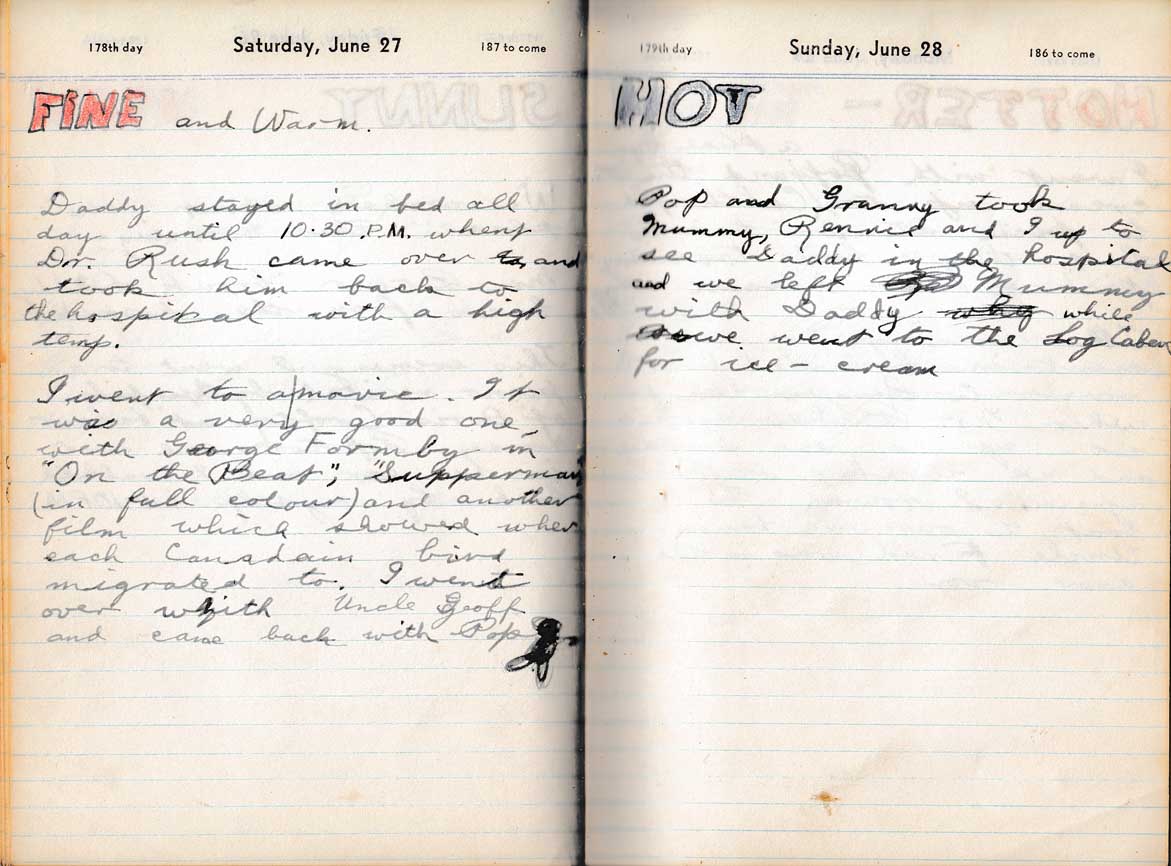 178th day Saturday, June 27 187 to come
FINE and Warm.
Daddy stayed in bed all
day until 10·30 P.M. when
Dr. Rush came over and
took him back to
the hospital with a high
temp.
I went to a movie. It
was a very good one,
with George Formby in
"On the Beat", "Supperman
(in full colour) and another
film which showed wher
each Canadain bird
migrated to. I went
over with Uncle Geoff
and came back with Pop
179th day Sunday, June 28 186 to come
HOT
Pop and Granny took
Mummy, Rennie and I up to
see Daddy in the hospital
and we left Mummy
with Daddy while
we went to the Log Caben
for ice-cream